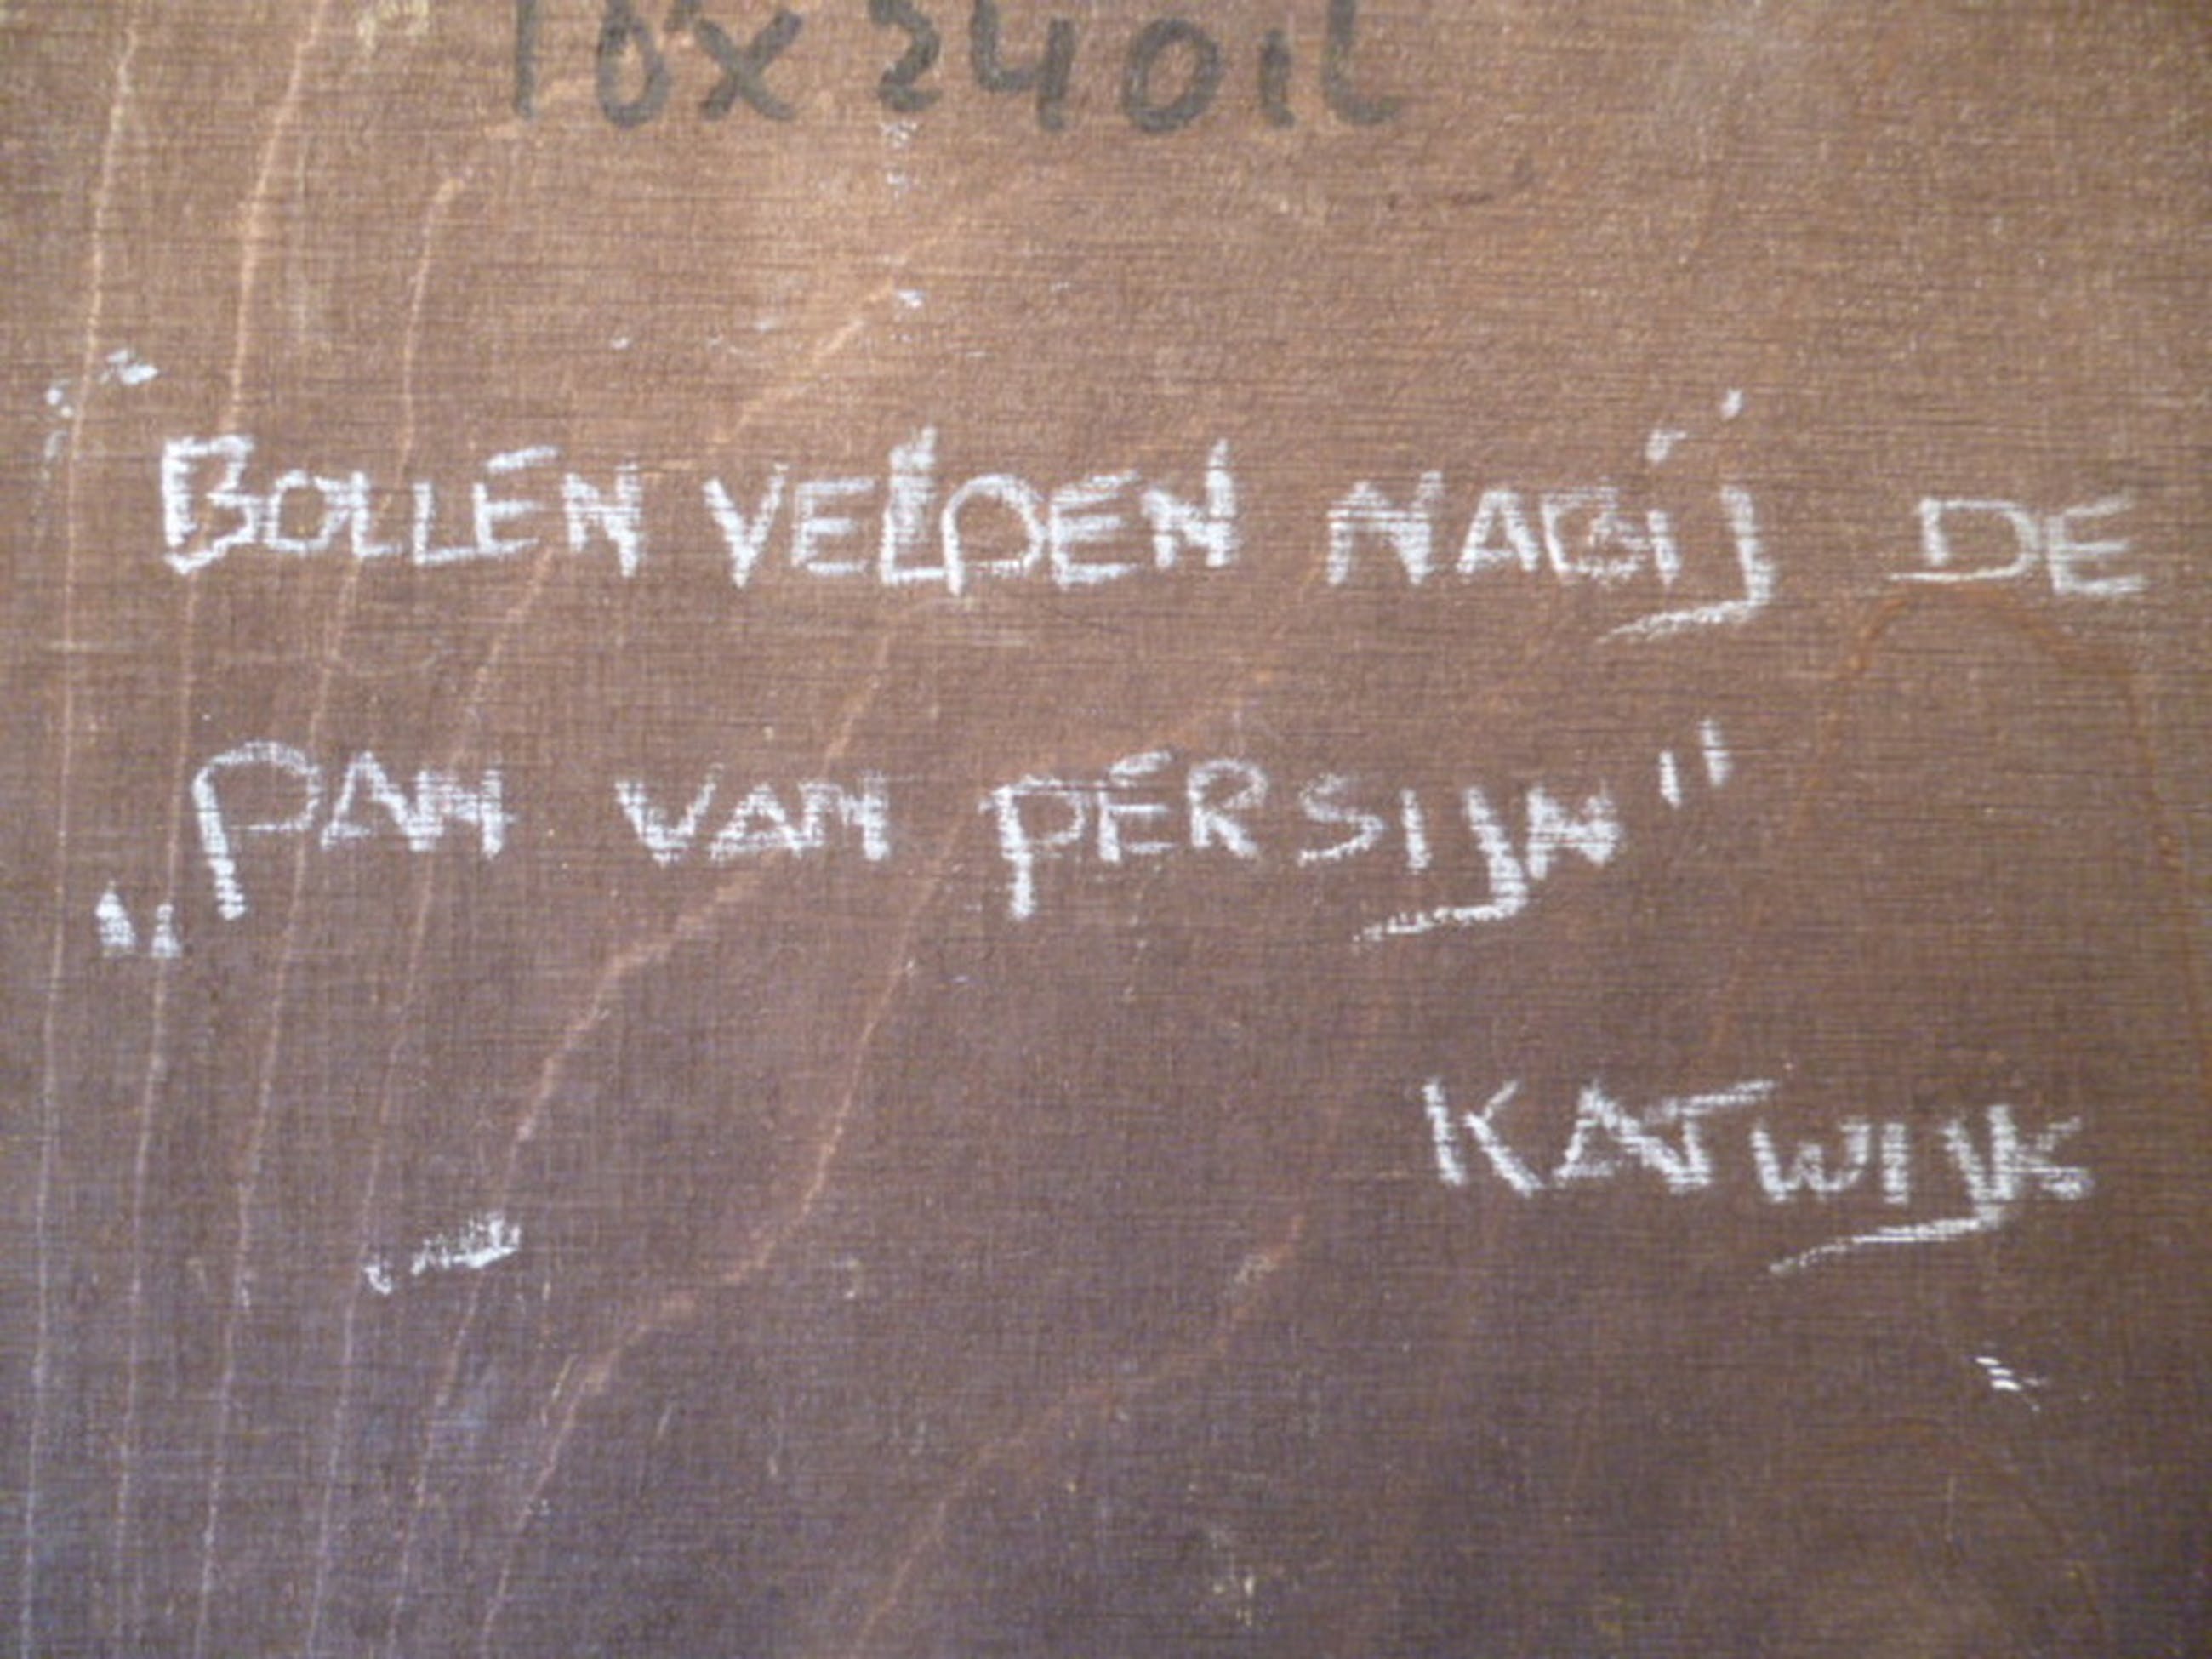 10x24 OIL
"BOLLENVELDEN NABIJ DE
„PAN VAN PERSIJN"
KATWIJK